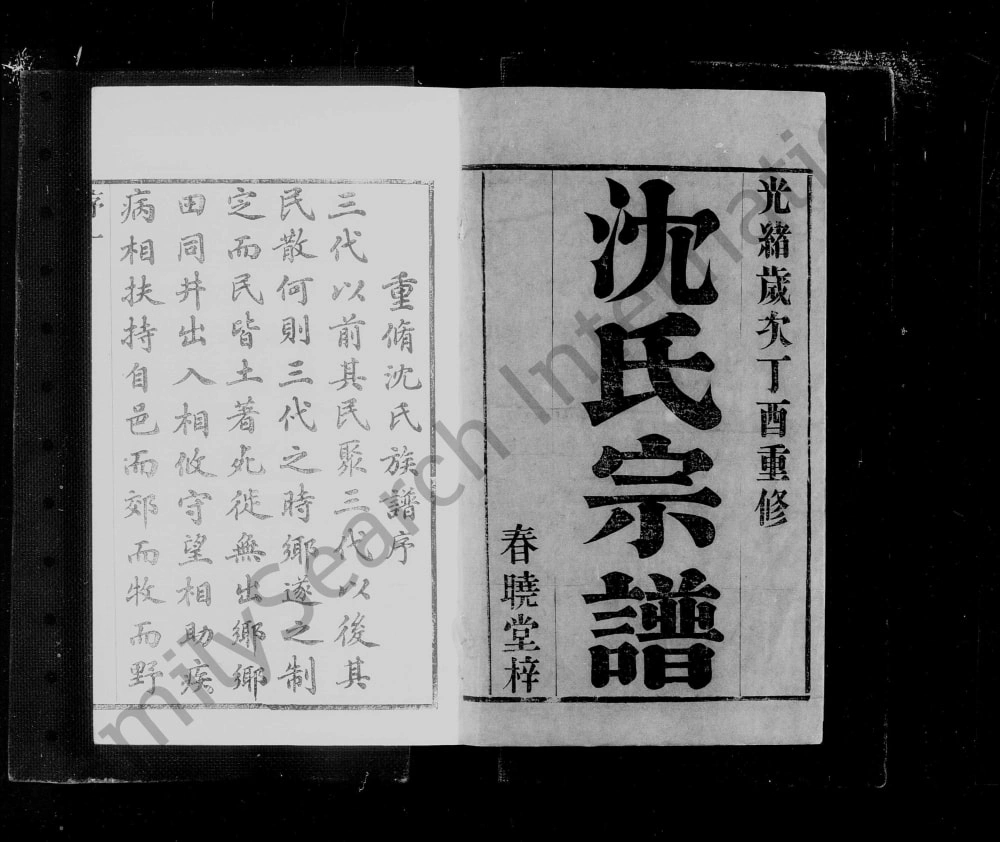 光緒歲次丁酉重修
沈氏宗譜
春曉堂梓
重脩沈氏族譜序
三代以前其民聚三代以後其
民散何則三代之時鄉遂之制
定而民皆土著死徙無出鄉鄉
田同井出入相攸守望相助疾
病相扶持自邑而郊而牧而野
序一
milySearch Internatio